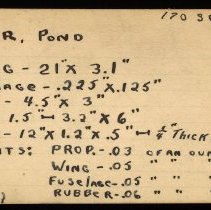 170 3
R, POND
G - 21" X 3.1"
AGE - .225 X .125"
- 4.5" X 3"
1.5" H 3.2" X 6"
- 12" X 1.2" X .5" H 1/4" THICK
TS: PROP. - .03 OF AN OUN
WING - .05 " "
FUSELAGE - .05 " "
RUBBER - .06 " "